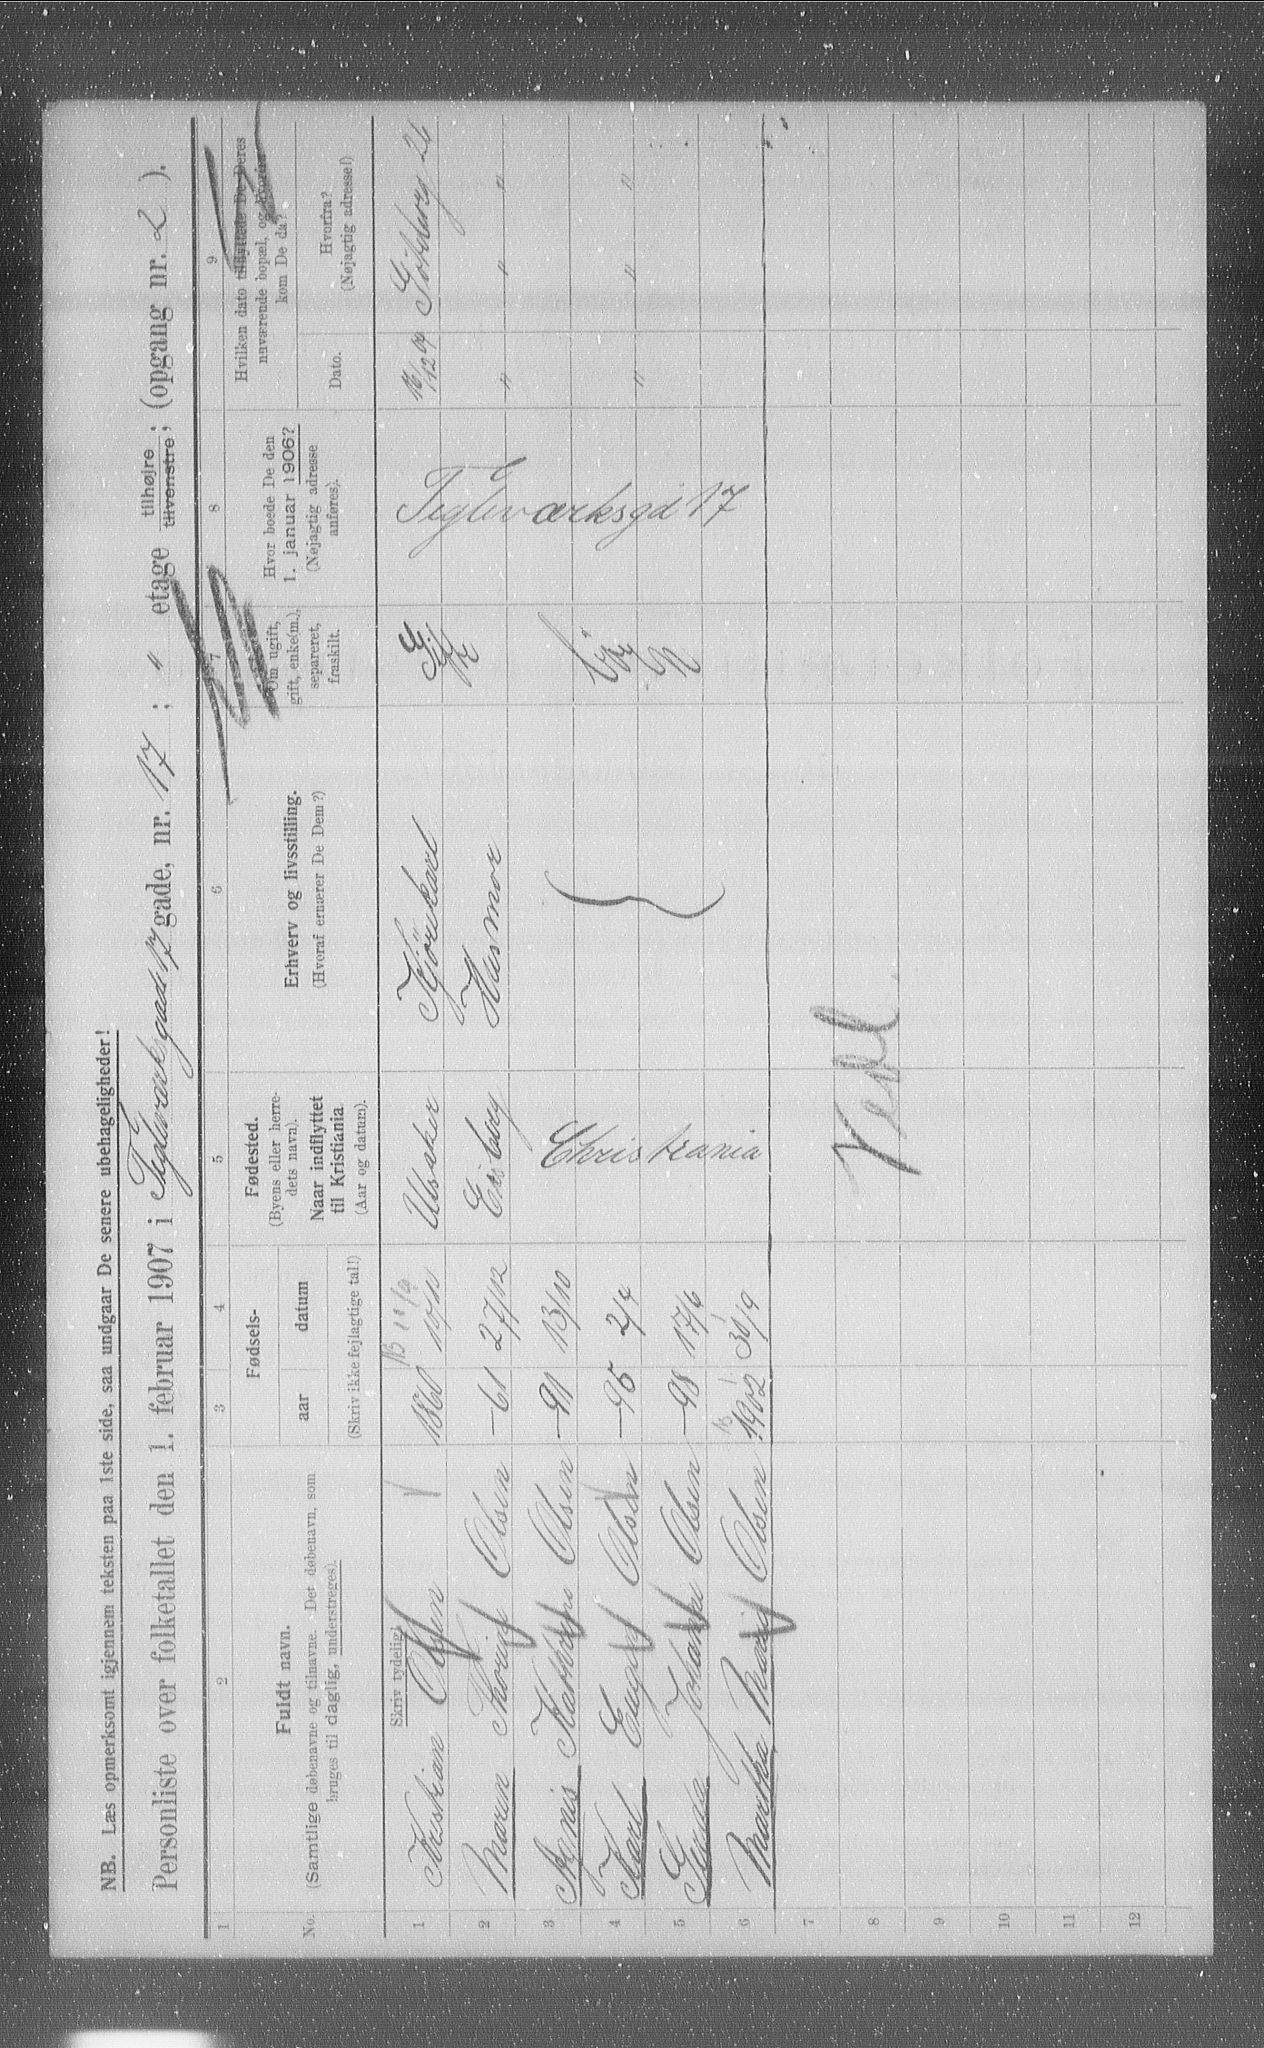 NB. Læs opmerksomt igjennem teksten paa 1ste side, saa undgaar De senere ubehageligheder!
Personliste over folketallet den 1. februar 1907 i Teglværksgad 17 gade, nr. 17; " etage tilhøjre tilvenstre; (opgang nr. 2).
1 2 3 4 5 6 7 8 9
No.
Fuldt navn.
(Samtlige døbenavne og tilnavne. Det døbenavn, som
bruges til daglig, understreges).
Skriv tydelig!
Fødsels-
aar datum
(Skriv ikke fejlagtige tal!)
Fødested.
(Byens eller herre-
dets navn).
Naar indflyttet
til Kristiania
(Aar og datum).
Erhverv og livsstilling.
(Hvoraf ernærer De Dem?)
Om ugift,
gift, enke(m.),
separeret,
fraskilt.
Hvor boede De den
1. januar 1906?
(Nøjagtig adresse
anføres).
Hvilken dato tilflyttede De Deres
nuværende bopæl, og hvorfra
kom De da?
Dato.
Hvorfra?
(Nøjagtig adresse!)
1 Kristian Olsen 1860 10/11 Ulsaker Kjörekarl Gift Tegleværksgd 17 16/12 04 Göteberg 26
2 Maren Olsen -61 27/12 Eisberg Husmor " " "
3 Agnis Kathrin Olsen -91 13/10 Christiania
4 Karl Olsen -95 2/4 " " "
5 Gunda Johanne Olsen -98 17/6
6 Martha Marie Olsen 1902 30/9
7
8
9
10
11
12